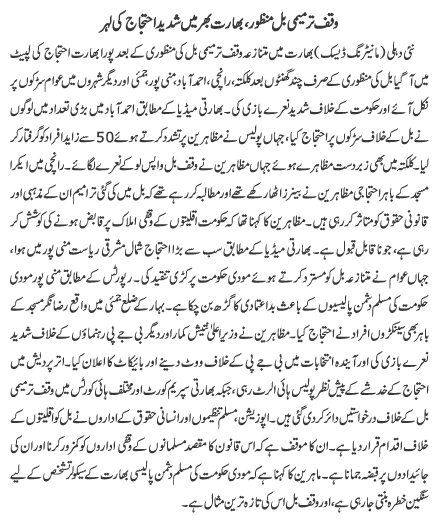 وقف ترمیمی بل منظور، بھارت بھر میں شدید احتجاج کی لہر
نئی دہلی (مانیٹرنگ ڈیسک) بھارت میں متنازعہ وقف ترمیمی بل کی منظوری کے بعد پورا بھارت احتجاج کی لپیٹ
میں آگیا بل کی منظوری کے صرف چند گھنٹوں بعد کلکتہ، رانچی، احمد آباد، منی پور، جمئی اور دیگر شہروں میں عوام سڑکوں پر
نکل آئے اور حکومت کے خلاف شدید نعرے بازی کی۔ بھارتی میڈیا کے مطابق احمد آباد میں بڑی تعداد میں لوگوں
نے بل کے خلاف سڑکوں پر احتجاج کیا، جہاں پولیس نے مظاہرین پر تشدد کرتے ہوئے 50 سے زاید افراد کو گرفتار کر
لیا۔ کلکتہ میں بھی زبردست مظاہرے ہوئے جہاں مظاہرین نے وقف بل واپس لو کے نعرے لگائے۔ رانچی میں ایکرا
مسجد کے باہر احتجاجی مظاہرین نے بینرز اٹھا رکھے تھے اور مطالبہ کر رہے تھے کہ بل میں کی گئی ترامیم ان کے مذہبی اور
قانونی حقوق کو متاثر کر رہی ہیں۔ مظاہرین کا کہنا تھا کہ حکومت اقلیتوں کے وقفی املاک پر قابض ہونے کی کوشش کر
رہی ہے، جو ناقابل قبول ہے۔ بھارتی میڈیا کے مطابق سب سے بڑا احتجاج شمال مشرقی ریاست منی پور میں ہوا،
جہاں عوام نے متنازعہ بل کو مسترد کرتے ہوئے مودی حکومت پر کڑی تنقید کی۔ رپورٹس کے مطابق منی پور مودی
حکومت کی مسلم دشمن پالیسیوں کے باعث بداعتمادی کا گڑھ بن چکا ہے۔ بہار کے ضلع جمئی میں واقع رضا نگر مسجد کے
باہر بھی سینکڑوں افراد نے احتجاج کیا۔ مظاہرین نے وزیراعلیٰ نتیش کمار اور دیگر بی جے پی رہنماؤں کے خلاف شدید
نعرے بازی کی اور آیندہ انتخابات میں بی جے پی کے خلاف ووٹ دینے اور بائیکاٹ کا اعلان کیا۔ اتر پردیش میں
احتجاج کے خدشے کے پیش نظر پولیس ہائی الرٹ رہی، جبکہ بھارتی سپریم کورٹ اور مختلف ہائی کورٹس میں وقف ترمیمی
بل کے خلاف درخواستیں دائر کر دی گئی ہیں۔ اپوزیشن، مسلم تنظیموں اور انسانی حقوق کے اداروں نے بل کو اقلیتوں کے
خلاف اقدام قرار دیا ہے۔ ان کا موقف ہے کہ اس قانون کا مقصد مسلمانوں کے وقفی اداروں کو کمزور کرنا اور ان کی
جائیدادوں پر قبضہ جمانا ہے۔ ماہرین کا کہنا ہے کہ مودی حکومت کی مسلم دشمن پالیسی بھارت کے سیکولر تشخص کے لیے
سنگین خطرہ بنتی جا رہی ہے، اور وقف بل اس کی تازہ ترین مثال ہے۔